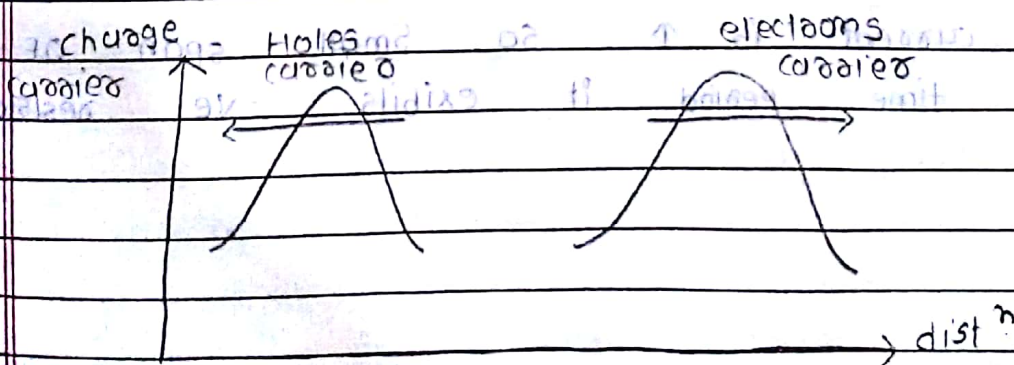 chuage
carrier
Holes
carrier
electaons
carrier
dist n